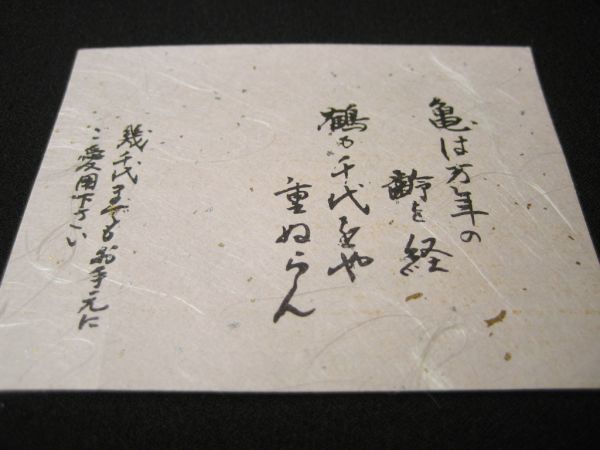 亀は万年の
齢を経
鶴も千代をや
重ぬらん
幾千代までもお手元に
ご愛用下さい